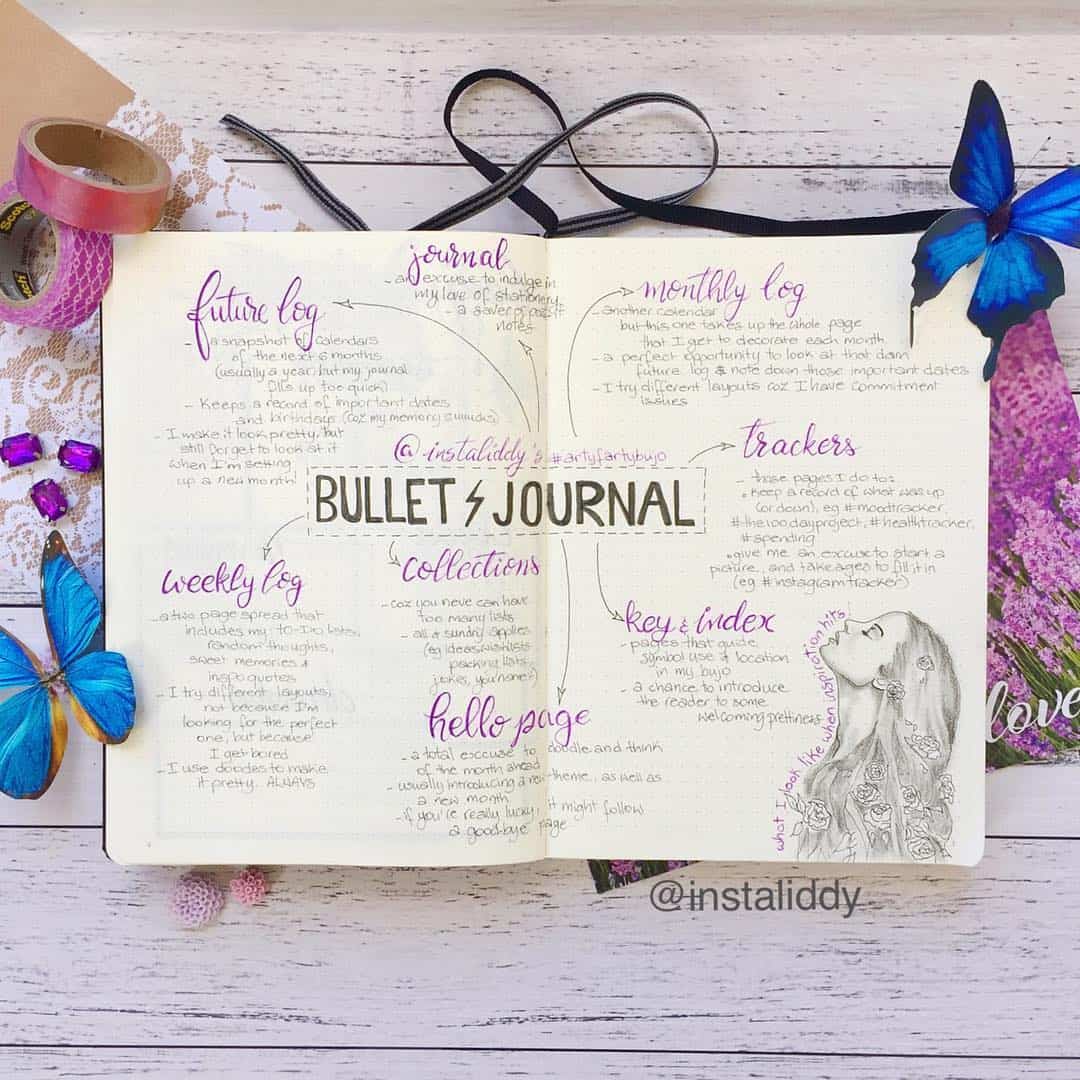 journal
an excuse to indulge in
my love of stationery
- a saver of post-it
notes
future log
- a snapshot of calendars
of the next 6 months
(usually a year, but my journal
fills up too quick)
- keeps a record of important dates
and birthdays (coz my memory suuucks)
- I make it look pretty, but
still forget to look at it
when I'm setting
up a new month!
monthly log
- another calendar
but this one takes up the whole page
that I get to decorate each month
- a perfect opportunity to look at that damn
future log & note down those important dates
- I try different layouts coz I have commitment
issues
@instaliddy's #artyfartybujo
BULLET JOURNAL
trackers
- those pages I do to:
• keep a record of what was up
(or down), eg #moodtracker,
#the100dayproject, #healthtracker,
#spending
• give me an excuse to start a
picture, and take ages to fill it in
(eg #instagramtracker)
weekly log
- a two page spread that
includes my to-do lists,
random thoughts,
sweet memories &
inspo quotes
- I try different layouts,
not because I'm
looking for the perfect
one, but because
I get bored
- I use doodes to make
it pretty. ALWAYS
collections
- coz you neve can have
too many lists
- all & sundry applies
(eg ideas, wishlists
packing lists,
jokes, you name it)
key & index
- pages that guide
symbol use & location
in my bujo
- a chance to introduce
the reader to some
welcoming prettiness
hello page
- a total exccuse to doodle and think
of the month ahead
- usually introducing a new theme, as well as
a new month
- if you're really lucky, it might follow
a good-bye page
what I look like when inspiration hits!
Scotch
love
@instaliddy